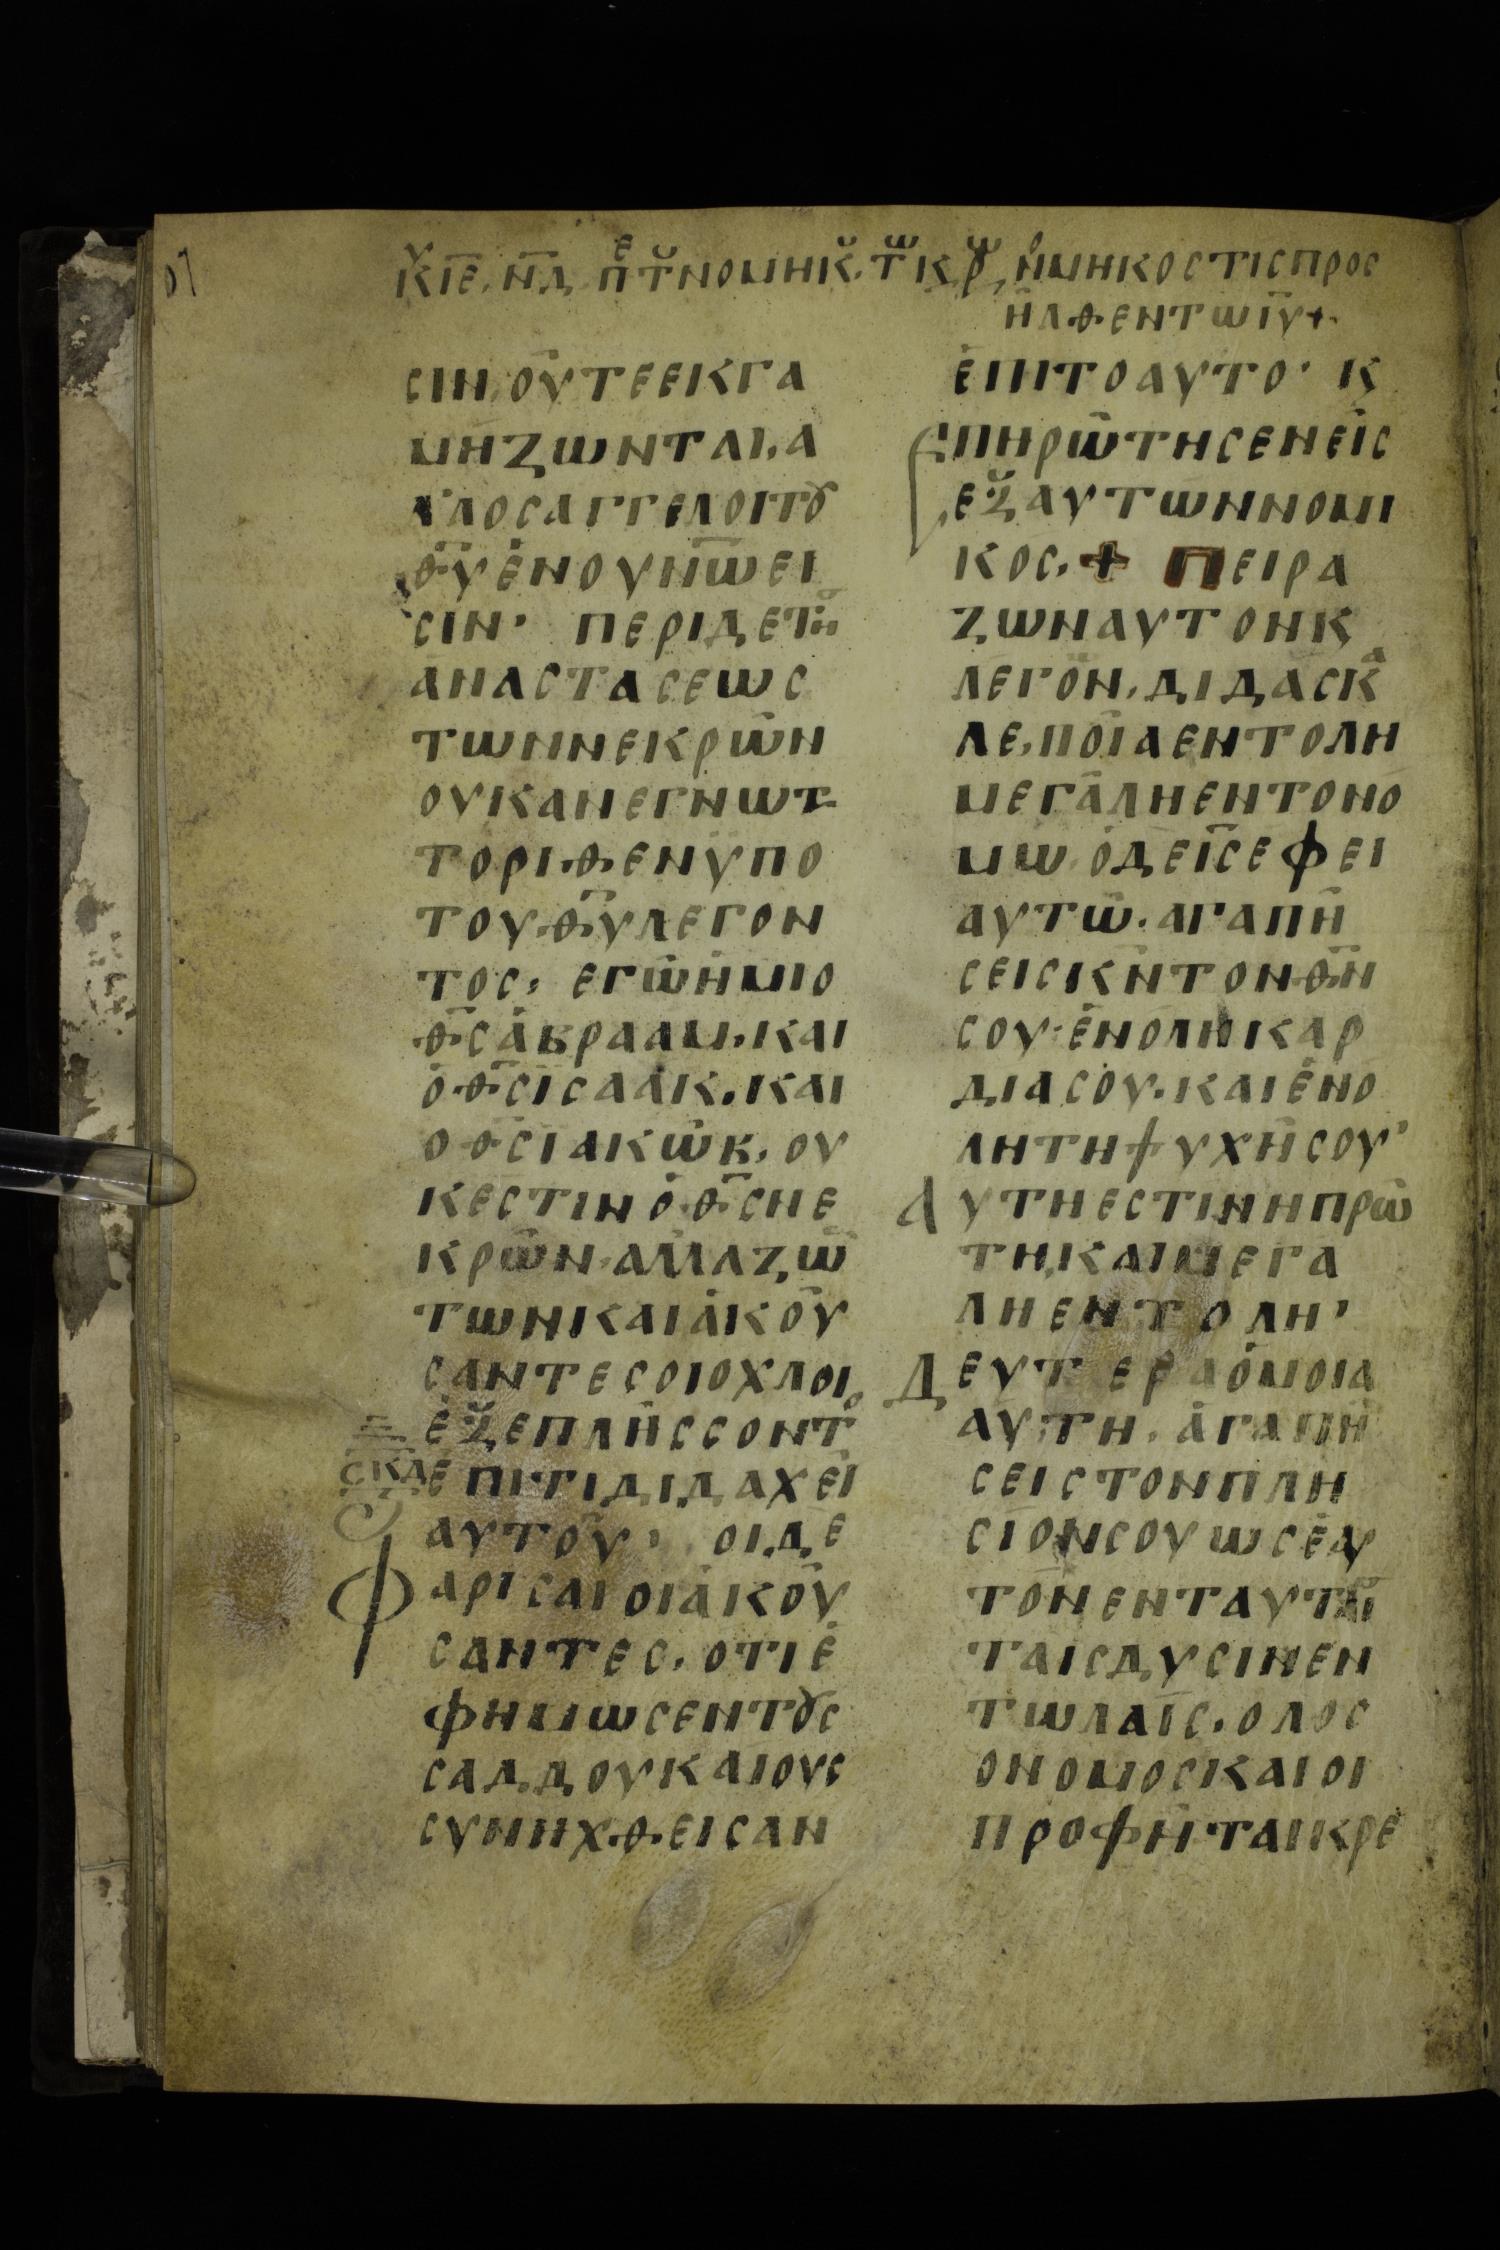 ΚῙΕ. Ν̄Δ ΠΕΤΝΟΜΗΚ. ΤΩ ΚΡΩ, ΝΜΗΚΟΣ ΤΙΣ ΠΡΟΣ
ΗΛΘΕΝ ΤΩ ῙΥ +
CΙΝ, ΟΥΤΕΕΚΓΑ
ΜΗΖΩΝΤΑΙ, Α
ΛΛΟCΑΓΓΕΛΟΙΤȣ
Θ̅Υ̅ΕΝΟΥΝΩΕΙ
CΙΝ· ΠΕΡΙΔΕΤΗ
ΑΝΑCΤΑCΕΩC
ΤΩΝΝΕΚΡΩΝ
ΟΥΚΑΝΕΓΝΩΤ
ΤΟΡΙΘΕΝΫΠΟ
ΤΟΥΘ̅Υ̅ΛΕΓΟΝ
ΤΟC, ΕΓΩΗΜΙΟ
Θ̅C̅ΑΒΡΑΑΜ, ΚΑΙ
ΟΘ̅C̅ΙCΑΑΚ. ΚΑΙ
ΟΘ̅C̅ΙΑΚΩΚ, ΟΥ
ΚΕCΤΙΝΟΘ̅C̅ΝΕ
ΚΡΩΝ·ΑΛΛΑΖΩ
ΤΩΝΚΑΙΑΚΟΥ
CΑΝΤΕCΟΙΟΧΛΟΙ
ΕΞΕΠΛΗCCΟΝΤΟ
CΚΔ ΕΠΙΤΙΔΙΔΑΧΕΙ
ΑΥΤΟΥ, ΟΙΔΕ
ΦΑΡΙCΑΙΟΙΑΚΟΥ
CΑΝΤΕC, ΟΤΙΕ
ΦΗΜΩCΕΝΤȣC
CΑΔΔΟΥΚΑΙΟΥC
CΥΝΗΧΘΕΙCΑΝ
ΕΠΙΤΟΑΥΤΟ· Κ
ΕΠΗΡΩΤΗCΕΝΕΙC
ΕΞΑΥΤΩΝΝΟΜΙ
ΚΟC, + ΠΕΙΡΑ
ΖΩΝΑΥΤΟΝΚ
ΛΕΓΟΝ, ΔΙΔΑCΚΑ
ΛΕ, ΠΟΙΑΕΝΤΟΛΗ
ΜΕΓΑΛΗΕΝΤΟΝΟ
ΜΩ· ΟΔΕΙCΕΦΕΙ
ΑΥΤΩ. ΑΓΑΠΗ
CΕΙCΚΝΤΟΝΘ̅Ν̅
CΟΥ·ΕΝΟΛΗΚΑΡ
ΔΙΑCΟΥ. ΚΑΙΕΝΟ
ΛΗΤΗΨΥΧΗCΟΥ·
ΑΥΤΗΕCΤΙΝΗΠΡΩ
ΤΗΚΑΙΜΕΓΑ
ΛΗΕΝΤΟΛΗ,
ΔΕΥΤΕΡΑΟΜΟΙΑ
ΑΥΤΗ. ΑΓΑΠΗ
CΕΙCΤΟΝΠΛΗ
CΙΟΝCΟΥΩCΕΑΥ
ΤΟΝΕΝΤΑΥΤΑΙ
ΤΑΙCΔΥCΙΝΕΝ
ΤΩΛΑΙC. ΟΛΟC
ΟΝΟΜΟCΚΑΙΟΙ
ΠΡΟΦΗΤΑΙΚΡΕ